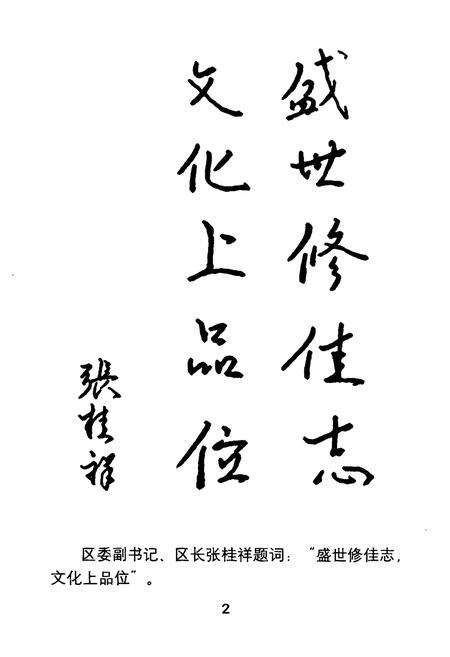 盛世修佳志
文化上品位
張桂祥
区委副书记、区长张桂祥题词：“盛世修佳志，
文化上品位”。
2